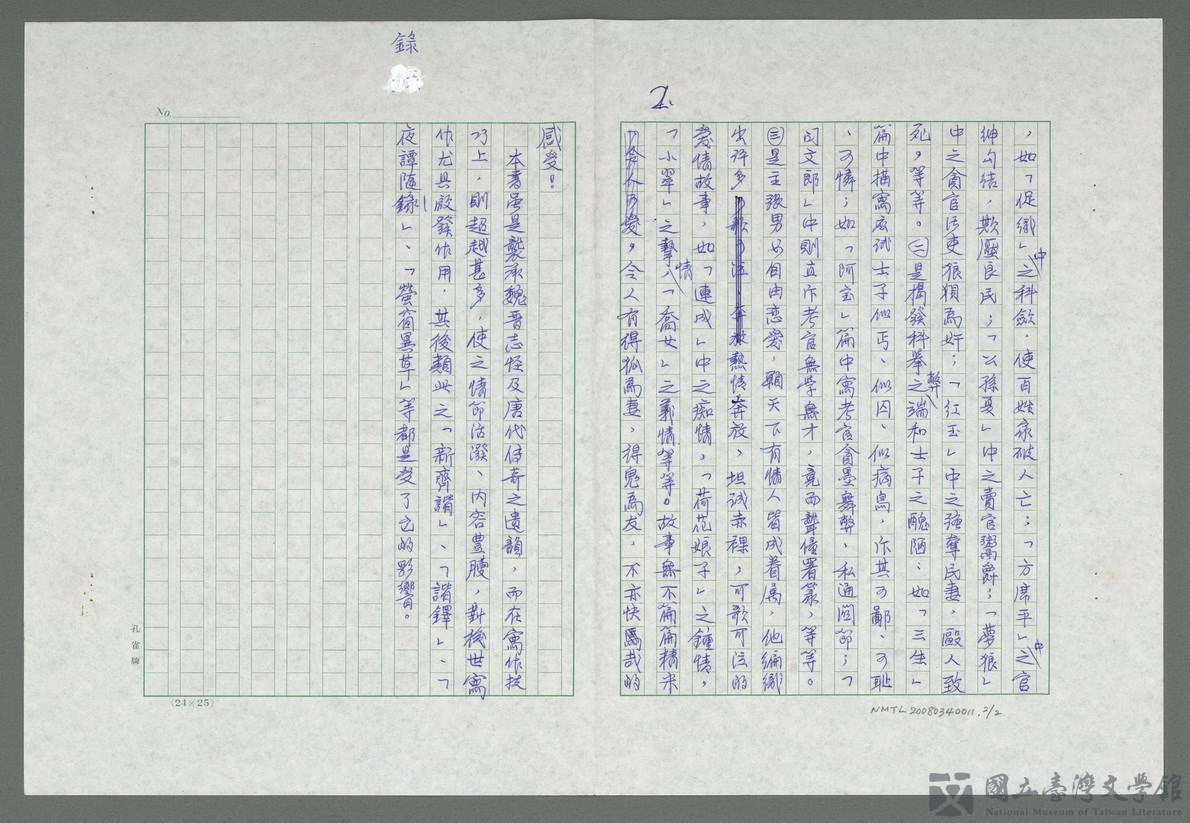 2.
，如「促織」中之科歛，使百姓家破人亡；「方席平」中之官
紳勾結，欺壓良民；「公孫夏」中之賣官鬻爵；「夢狼」
中之貪官污吏狼狽為奸；「紅玉」中之強奪民妻，毆人致
死，等等。㊁是揭發科舉之弊端和士子之醜陋：如「三生」
篇中描寫應試士子似丐、似囚、似病鳥，斥其可鄙、可恥
、可憐；如「阿宝」篇中寫考官貪墨舞弊、私通関節；「
司文郎」中則直斥考官無学無才，竟而聾僮署篆，等等。
㊂是主張男女自由恋愛，願天下有情人皆成眷属，他編織
出許多熱情奔放、坦誠赤裸，可歌可泣的
愛情故事，如「連成」中之痴情，「荷花娘子」之鍾情，
「小翠」之摯情、「喬女」之義情等等。故事無不篇篇精采
，令人可愛，令人有得狐為妻，得鬼為友，不亦快焉哉的
感受！
本書虽是襲承魏晋志怪及唐代传奇之遺韻，而在寫作技
巧上，則超越甚多，使之情節活潑、内容豊腴，對後世寫
作尤具啟發作用．其後類此之「新齊諧」、「諧鐸」、「
夜譚隨錄」、「螢窗異草」等都是受了它的影響。
錄
No.
孔雀牌
(24×25)
NMTL20080340011.2/2
國立臺灣文學館
National Museum of Taiwan Literature